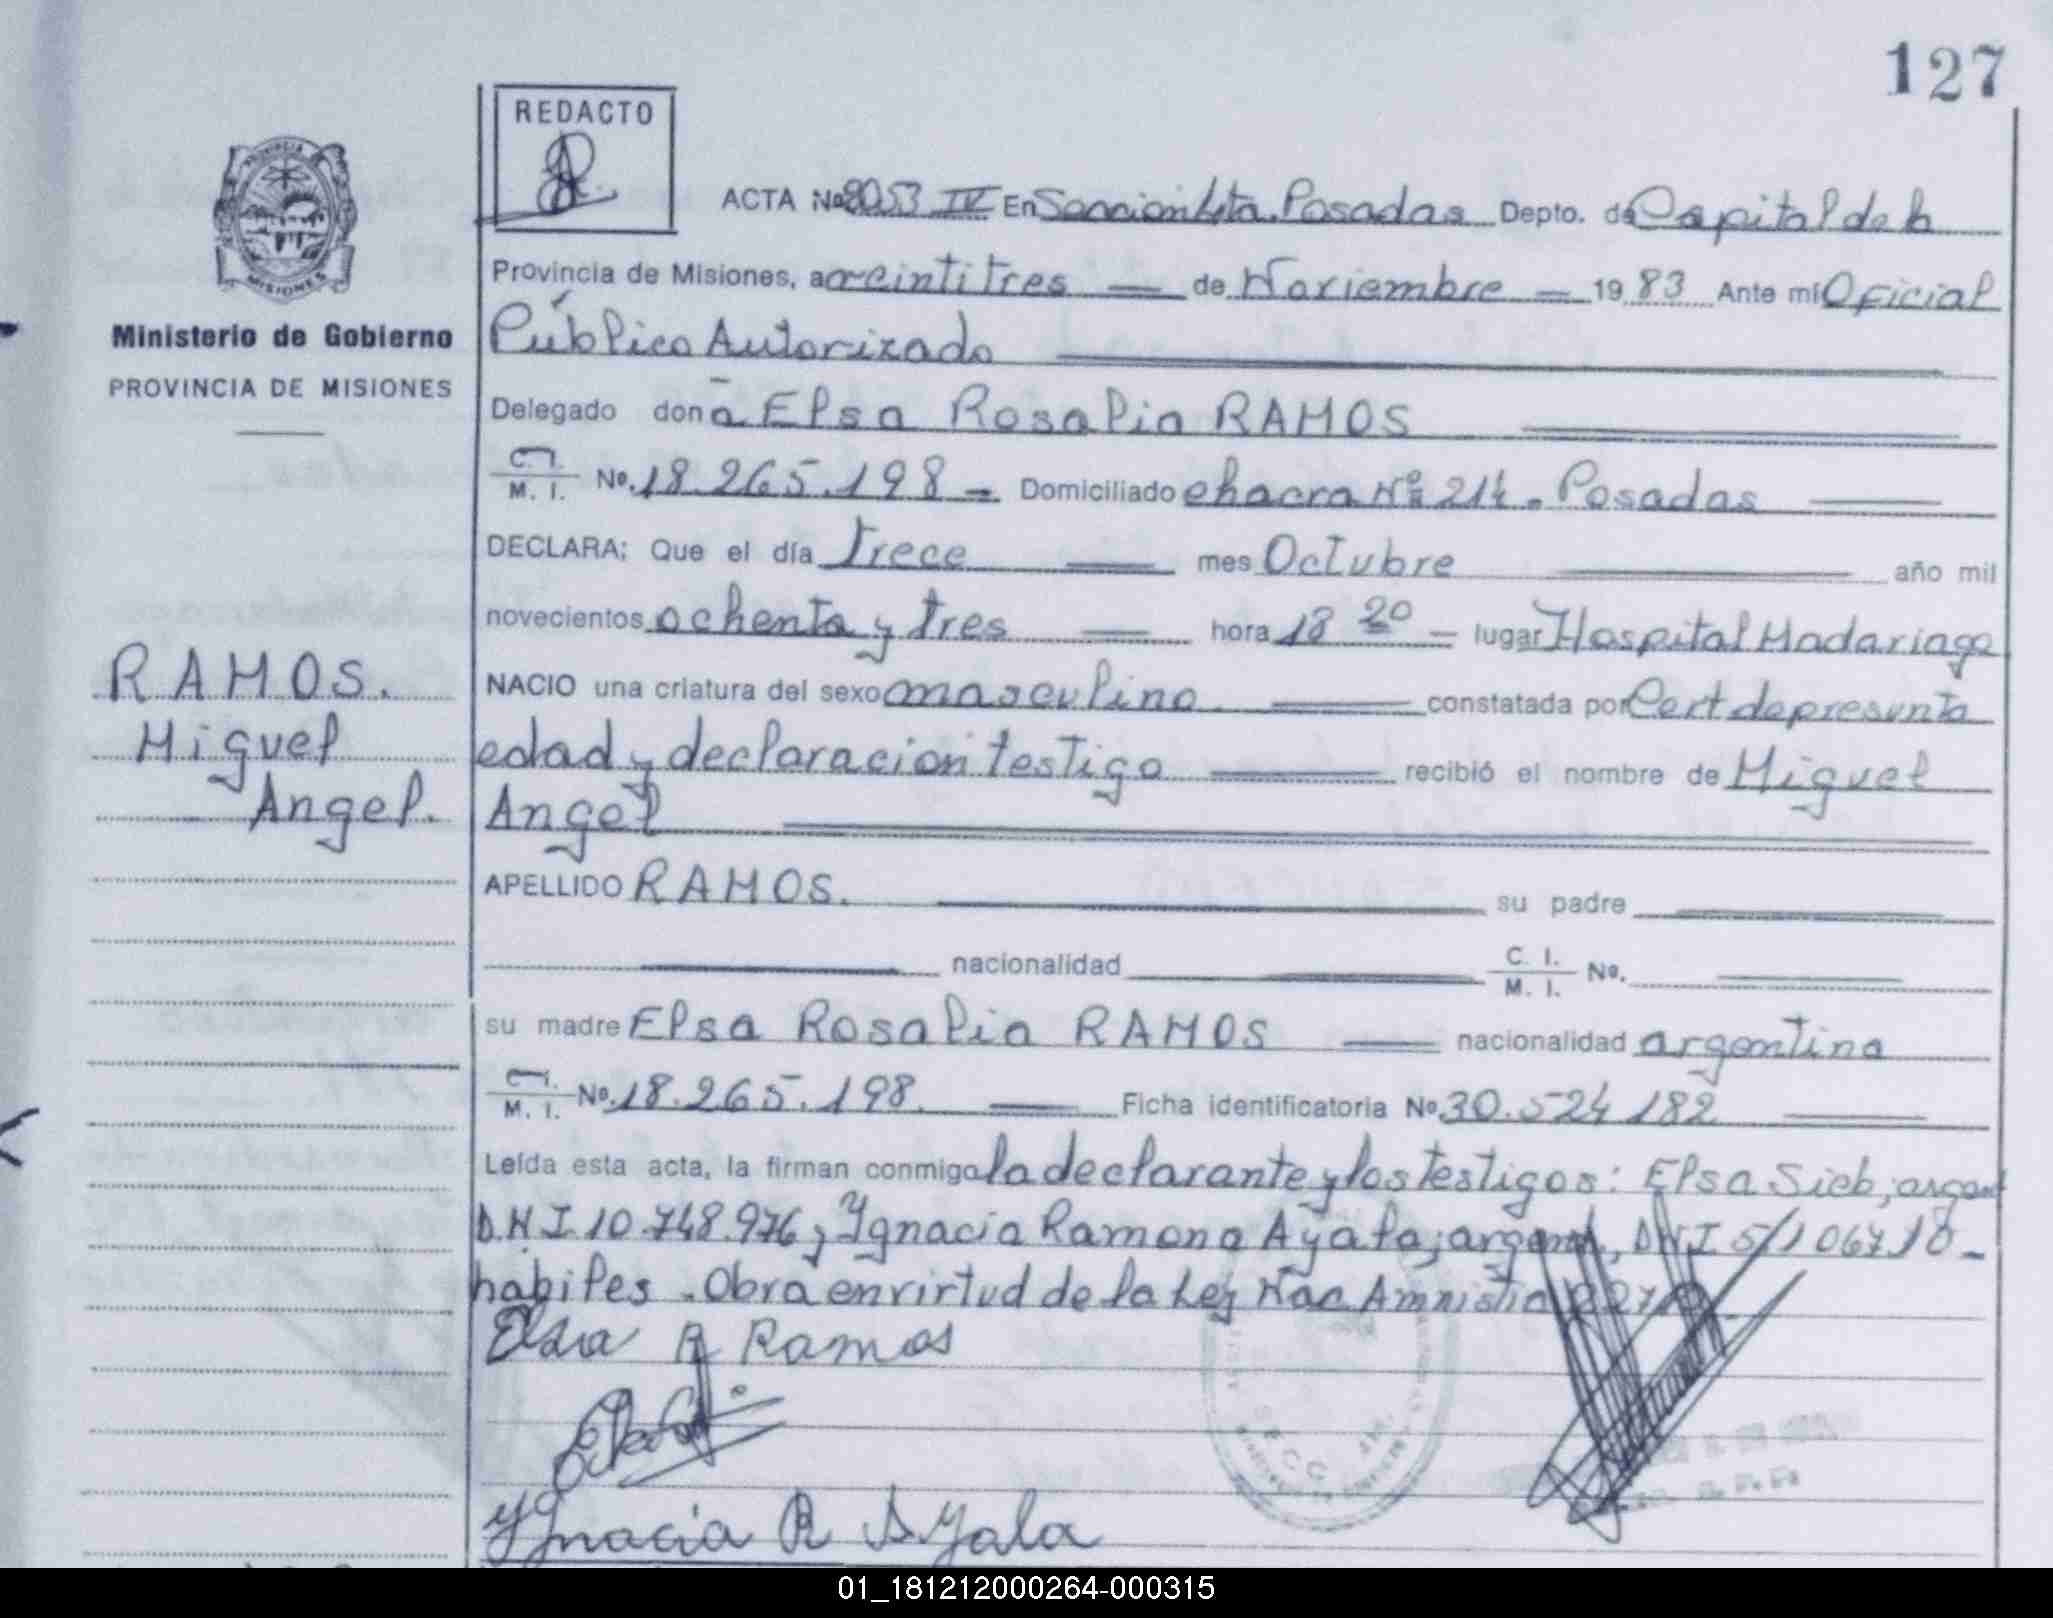 127
REDACTO
ACTA Nº 8053 IV En Seccion 4ta. Posadas Depto. de Capital de la
Provincia de Misiones, a veintitres de Noviembre 19 83 Ante mí Oficial
Ministerio de Gobierno
Público Autorizado
PROVINCIA DE MISIONES
Delegado doña Elsa Rosalia RAMOS
C. I.
M. I. Nº. 18.265.198 Domiciliado chacra Nº 214. Posadas
DECLARA: Que el día Trece mes Octubre año mil
novecientos ochenta y tres hora 18 20 lugar Hospital Madariaga
RAMOS.
NACIO una criatura del sexo masculino constatada por Cert de presunta
Miguel
edad y declaracion testigo recibió el nombre de Miguel
Angel.
Angel
APELLIDO RAMOS. su padre
nacionalidad C. I.
M. I. Nº.
su madre Elsa Rosalia RAMOS nacionalidad argentina
C. I.
M. I. Nº. 18.265.198. Ficha identificatoria Nº. 30.524 182
Leída esta acta, la firman conmigo la declarante y los testigos: Elsa Sieb, argent
D.N.I. 10.748.976, Ygnacia Ramona Ayala, argent, DNI
habiles. Obra en virtud de la Ley Nac Amnistia
Elsa R Ramos
Ygnacia R Ayala
01_181212000264-000315